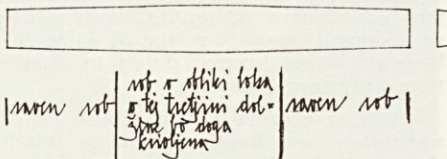 raven rob
rob v obliki loka
v tej tretjini dol=
žine bo doga
krivljena
raven rob